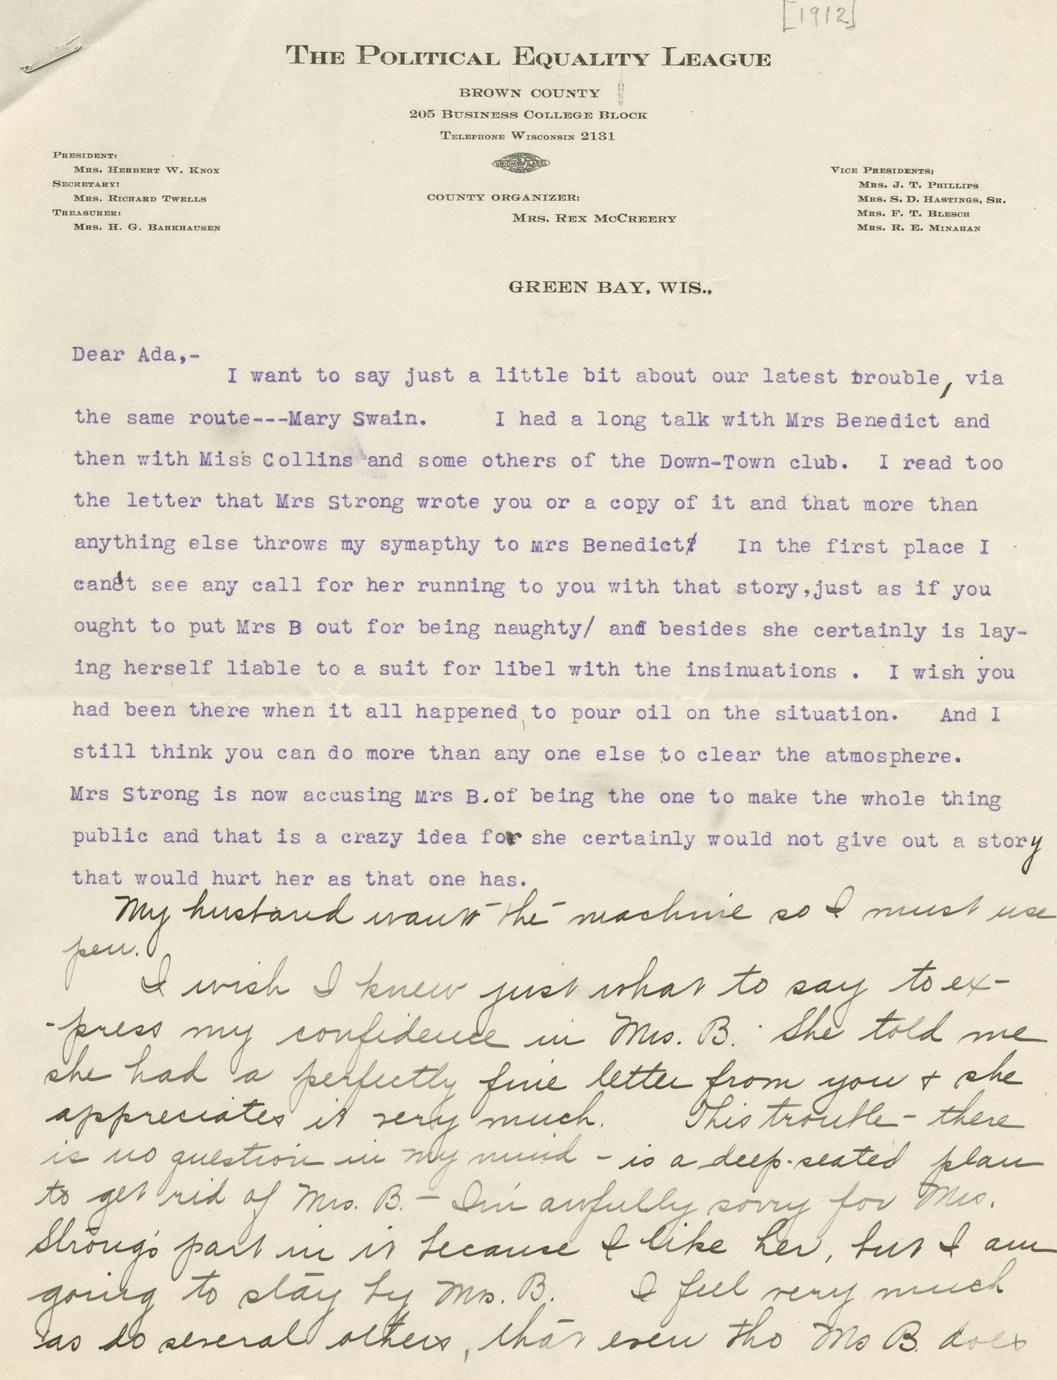 [1912]
The Political Equality League
BROWN COUNTY
205 Business College Block
Telephone Wisconsin 2131
President:
Mrs. Herbert W. Knox
Secretary:
Mrs. Richard Twells
Treasurer:
Mrs. H. G. Barkhausen
COUNTY ORGANIZER:
Mrs. Rex McCreery
Vice Presidents:
Mrs. J. T. Phillips
Mrs. S. D. Hastings, Sr.
Mrs. F. T. Blesch
Mrs. R. E. Minahan
GREEN BAY, WIS.,
Dear Ada,-
I want to say just a little bit about our latest trouble, via
the same route---Mary Swain. I had a long talk with Mrs Benedict and
then with Miss Collins and some others of the Down-Town club. I read too
the letter that Mrs Strong wrote you or a copy of it and that more than
anything else throws my symapthy to Mrs Benedict/ In the first place I
can't see any call for her running to you with that story,just as if you
ought to put Mrs B out for being naughty/ and besides she certainly is lay-
ing herself liable to a suit for libel with the insinuations . I wish you
had been there when it all happened to pour oil on the situation. And I
still think you can do more than any one else to clear the atmosphere.
Mrs Strong is now accusing Mrs B.of being the one to make the whole thing
public and that is a crazy idea for she certainly would not give out a story
that would hurt her as that one has.
My husband wants the machine so I must use
pen.
I wish I knew just what to say to ex-
-press my confidence in Mrs. B. She told me
she had a perfectly fine letter from you & she
appreciates it very much. This trouble - there
is no question in my mind - is a deep-seated plan
to get rid of Mrs. B. - I'm awfully sorry for Mrs.
Strong's part in it because I like her, but I am
going to stay by Mrs. B. I feel very much
as do several others, that even tho Mrs B. does